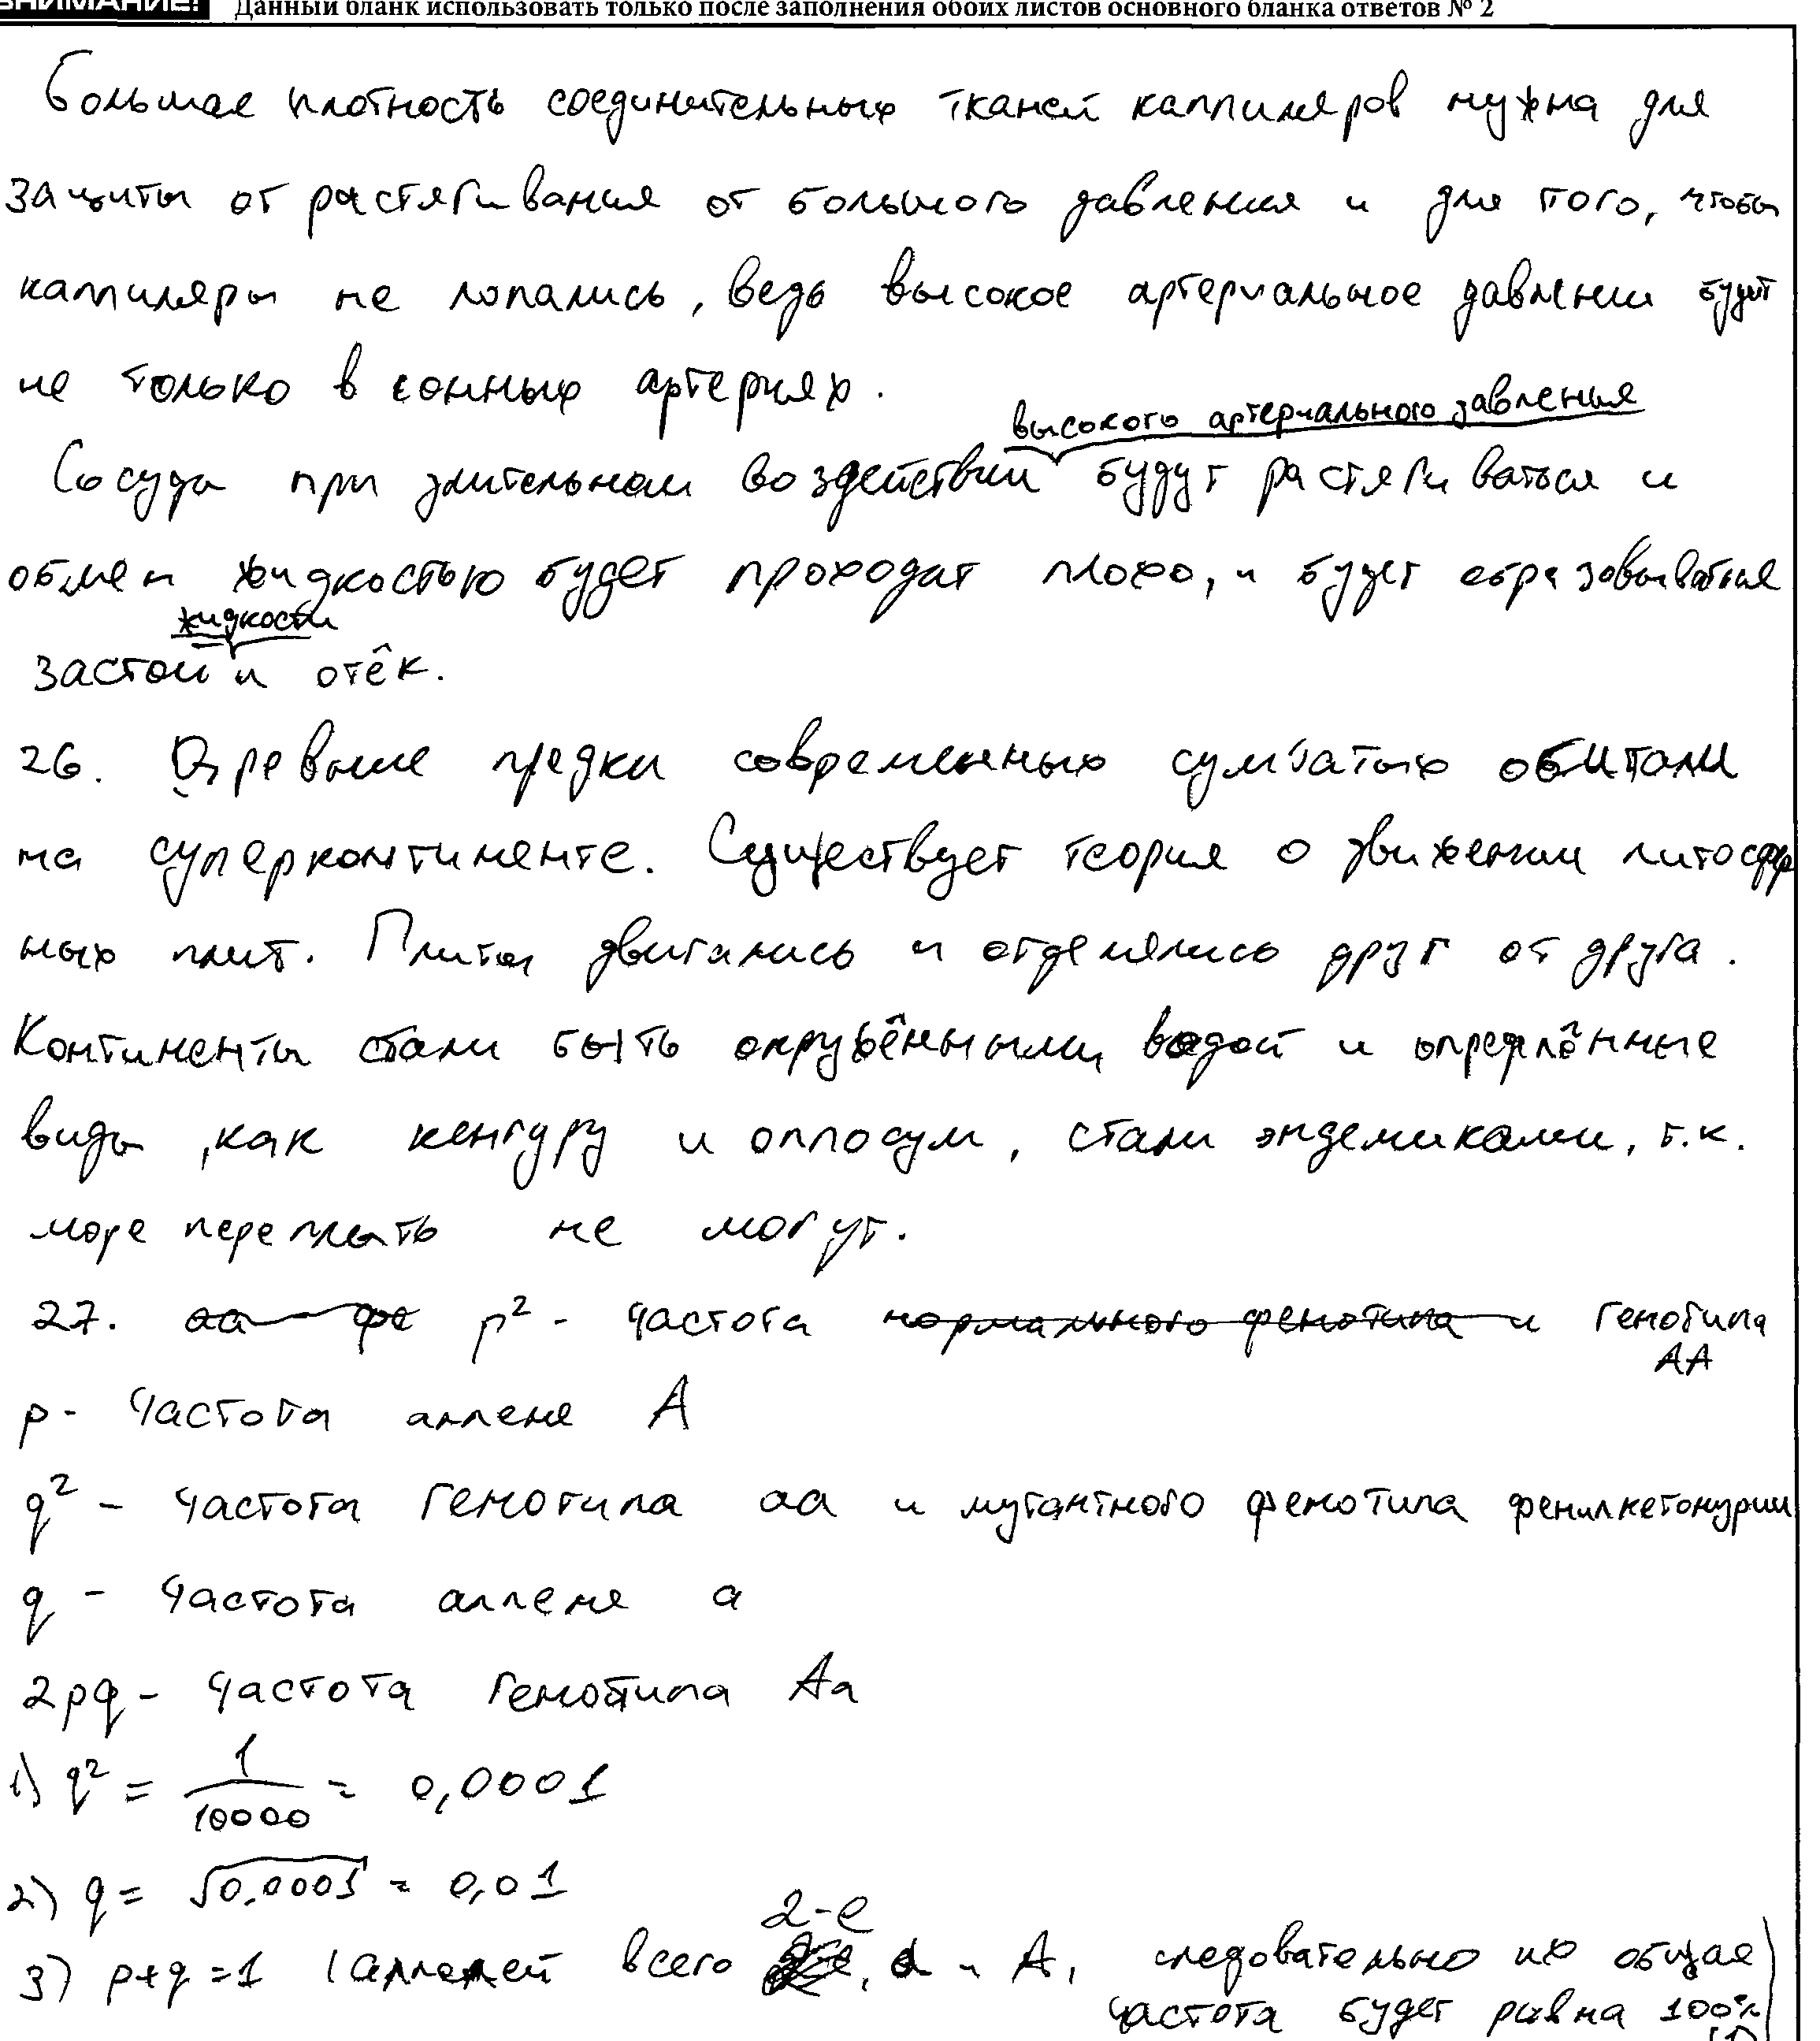 ВНИМАНИЕ! Данный бланк использовать только после заполнения обоих листов основного бланка ответов № 2
большая плотность соединительных тканей каппиляров нужна для
защиты от растягивания от большого давления и для того, чтобы
каппиляры не лопались, ведь высокое артериальное давлении будет
не только в сонных артериях.
высокого артериального давления
Сосуды при длительном воздействии будут растягиваться и
обмен жидкостью будет проходат плохо, и будет образовываться
жидкости
застой и отёк.
26. Древние предки современных сумчатых обитали
на суперконтиненте. Существует теория о движении литосфер
ных плит. Плиты двигались и отделялись друг от друга.
Континенты стали быть окружёнными водой и определённые
виды, как кенгуру и оппосум, стали эндемиками, т.к.
море переплыть не могут.
27. аа – фе p² - частота нормального фенотипа и генотипа
АА
p - частота аллеля А
q² - частота генотипа аа и мутантного фенотипа фенилкетонурии
q - частота аллеля а
2pq - частота генотипа Аа
1) q² = 1/10000 = 0,0001
2) q = √0,0001 = 0,01
2-е
3) p+q=1 (аллелей всего , а и А, следовательно их общая
частота будет равна 100%
(1)